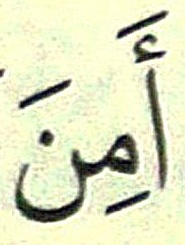 أَمِنَ